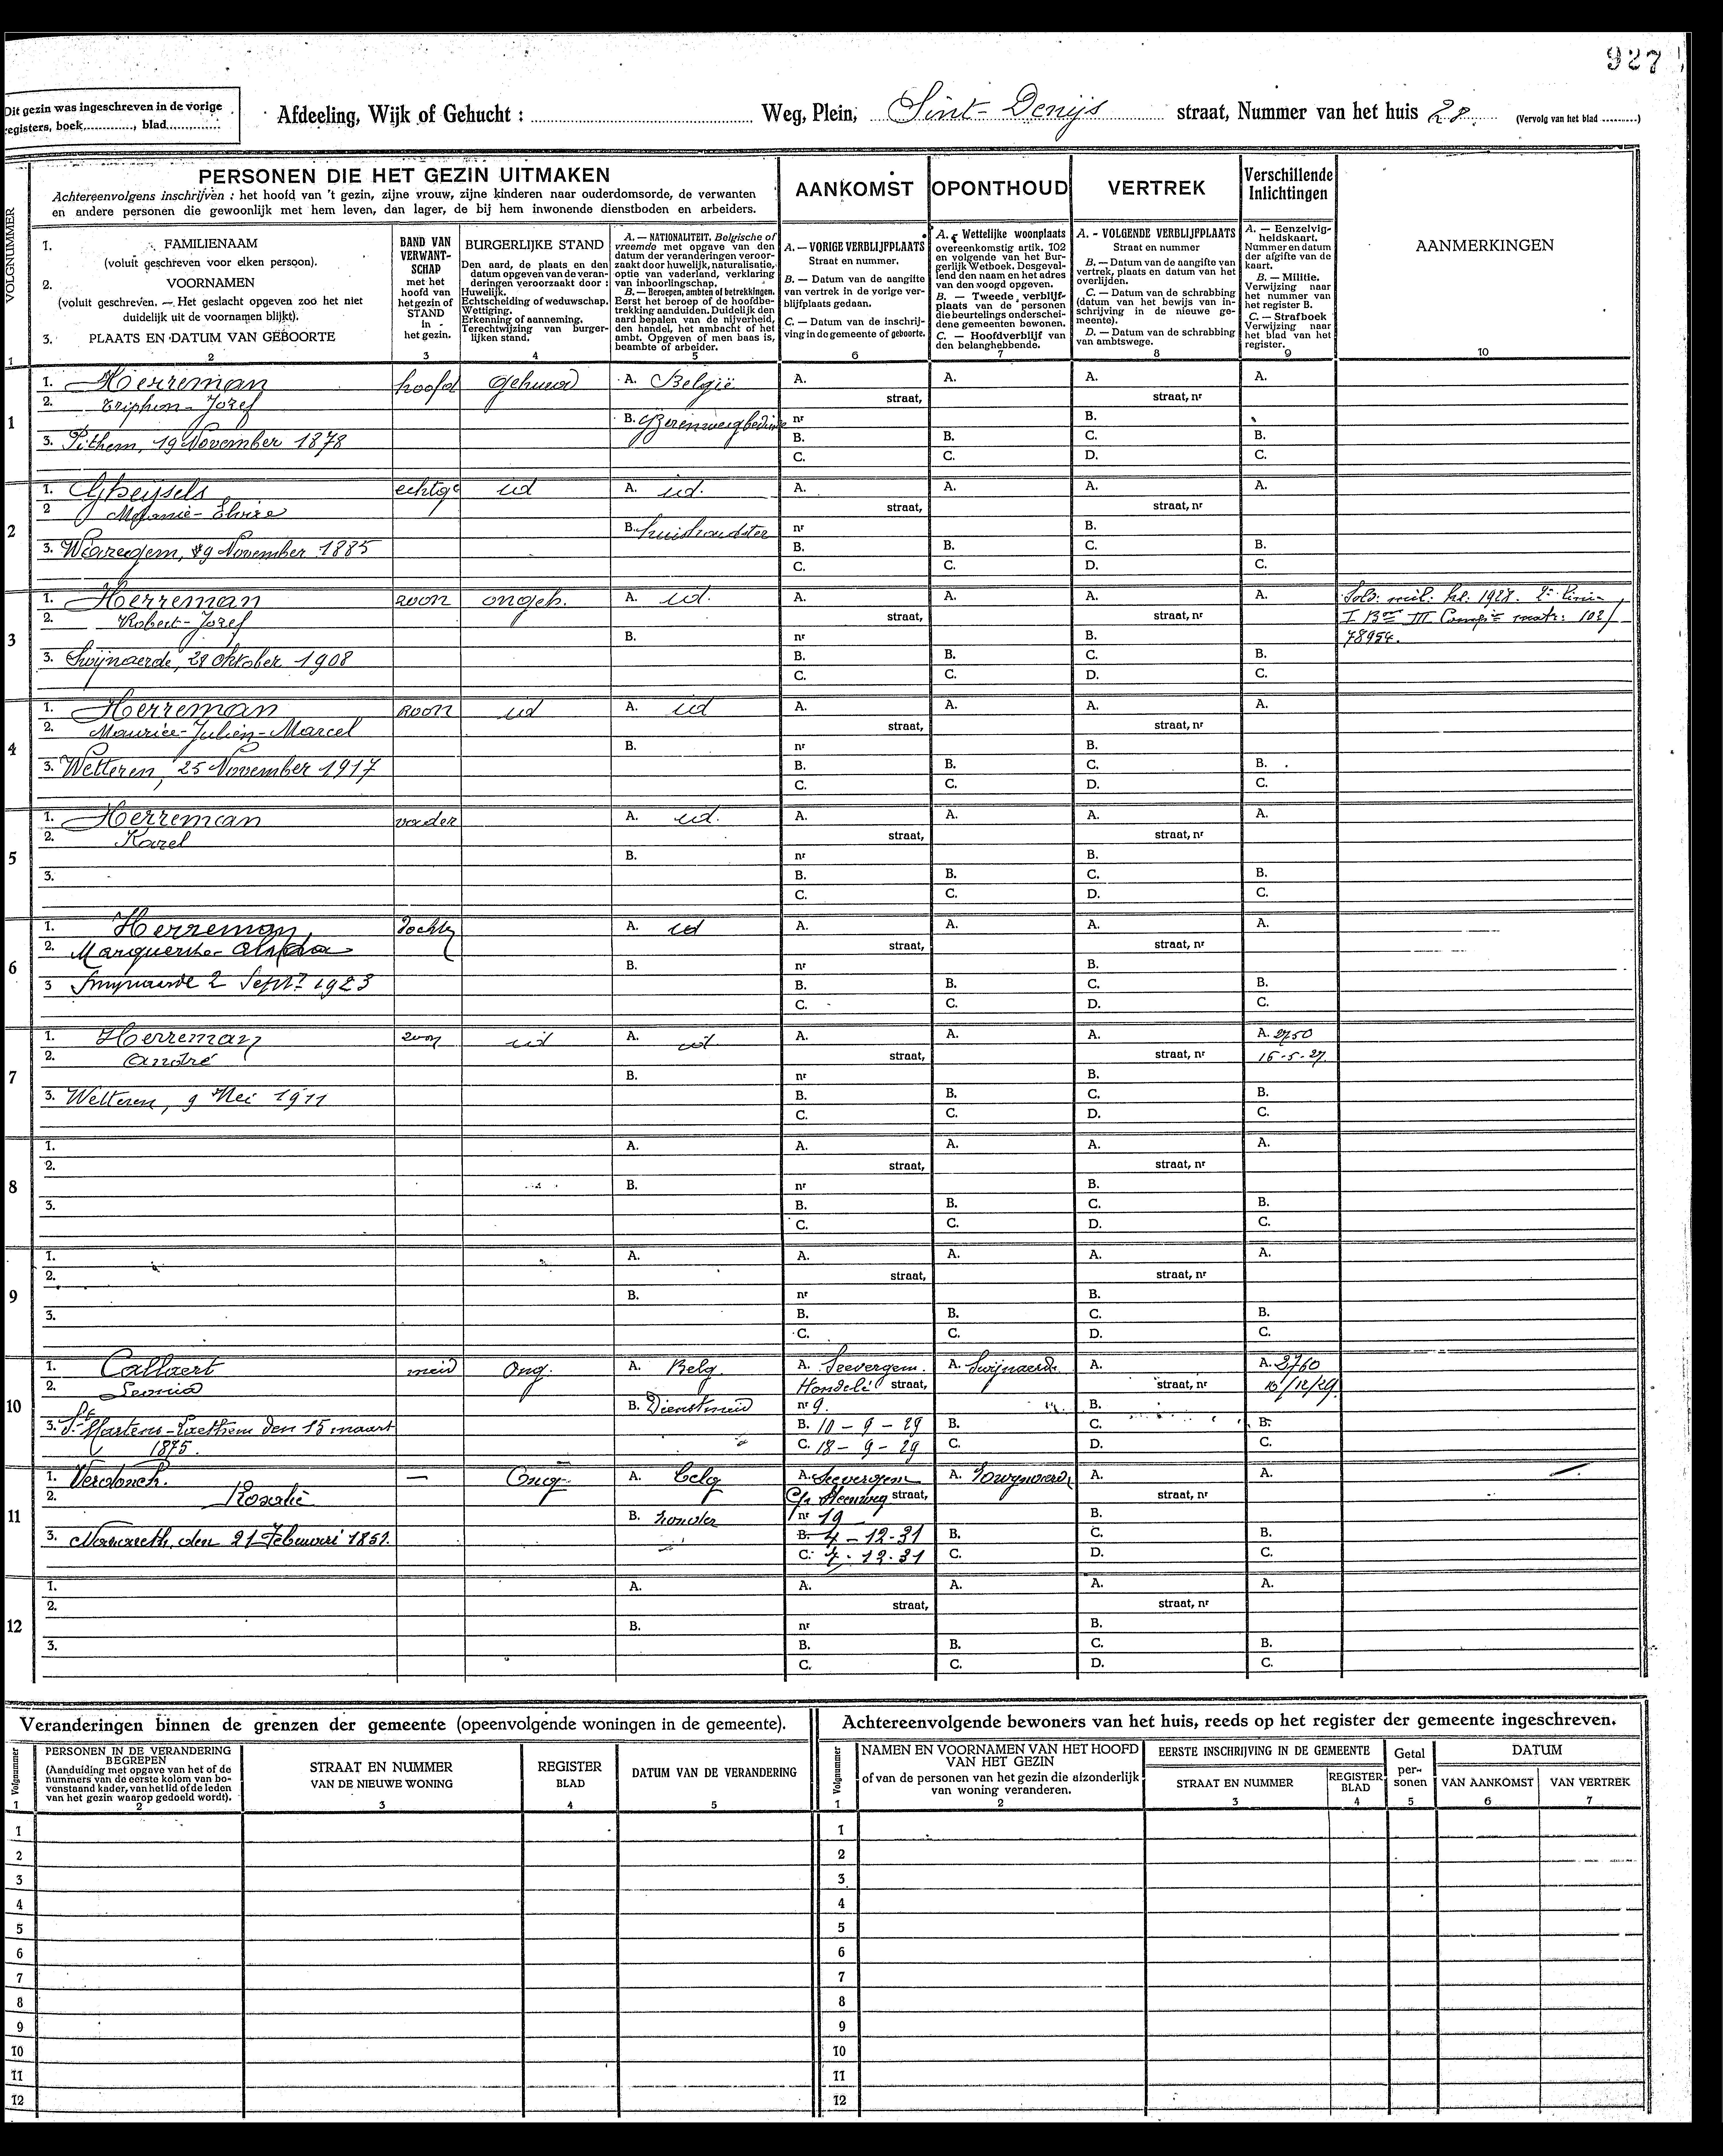 927
Dit gezin was ingeschreven in de vorige
registers, boek............, blad.............
Afdeeling, Wijk of Gehucht : ........ Weg, Plein, Sint-Denijs straat, Nummer van het huis 28. (Vervolg van het blad .........)
VOLGNUMMER
PERSONEN DIE HET GEZIN UITMAKEN
Achtereenvolgens inschrijven : het hoofd van 't gezin, zijne vrouw, zijne kinderen naar ouderdomsorde, de verwanten
en andere personen die gewoonlijk met hem leven, dan lager, de bij hem inwonende dienstboden en arbeiders.
AANKOMST
OPONTHOUD
VERTREK
Verschillende
Inlichtingen
1. FAMILIENAAM
(voluit geschreven voor elken persoon).
2. VOORNAMEN
(voluit geschreven. — Het geslacht opgeven zoo het niet
duidelijk uit de voornamen blijkt).
3. PLAATS EN DATUM VAN GEBOORTE
BAND VAN
VERWANT-
SCHAP
met het
hoofd van
het gezin of
STAND
in
het gezin.
BURGERLIJKE STAND
Den aard, de plaats en den
datum opgeven van de veran-
deringen veroorzaakt door :
Huwelijk.
Echtscheiding of weduwschap.
Wettiging.
Erkenning of aanneming.
Terechtwijzing van burger-
lijken stand.
A. — NATIONALITEIT. Belgische of
vreemde met opgave van den
datum der veranderingen veroor-
zaakt door huwelijk, naturalisatie,
optie van vaderland, verklaring
van inboorlingschap.
B. — Beroepen, ambten of betrekkingen.
Eerst het beroep of de hoofdbe-
trekking aanduiden. Duidelijk den
aard bepalen van de nijverheid,
den handel, het ambacht of het
ambt. Opgeven of men baas is,
beambte of arbeider.
A. — VORIGE VERBLIJFPLAATS
Straat en nummer.
B. — Datum van de aangifte
van vertrek in de vorige ver-
blijfplaats gedaan.
C. — Datum van de inschrij-
ving in de gemeente of geboorte.
A. — Wettelijke woonplaats
overeenkomstig artik. 102
en volgende van het Bur-
gerlijk Wetboek. Desgeval-
lend den naam en het adres
van den voogd opgeven.
B. — Tweede verblijf-
plaats van de personen
die beurtelings onderschei-
dene gemeenten bewonen.
C. — Hoofdverblijf van
den belanghebbende.
A. - VOLGENDE VERBLIJFPLAATS
Straat en nummer
B. — Datum van de aangifte van
vertrek, plaats en datum van het
overlijden.
C. — Datum van de schrabbing
(datum van het bewijs van in-
schrijving in de nieuwe ge-
meente).
D. — Datum van de schrabbing
van ambtswege.
A. — Eenzelvig-
heidskaart.
Nummer en datum
der afgifte van de
kaart.
B. — Militie.
Verwijzing naar
het nummer van
het register B.
C. — Strafboek
Verwijzing naar
het blad van het
register.
AANMERKINGEN
1 2 3 4 5 6 7 8 9 10
1 1. Herreman hoofd gehuwd A. België A. A. A. A.
2. Triphon-Jozef straat, straat, nr
B. IJzerenwegbediende nr B.
3. Pithem, 19 November 1878 B. B. C. B.
C. C. D. C.
2 1. Gheijsels echtge id A. id. A. A. A. A.
2 Melanie-Elvire straat, straat, nr
B. huishoudster nr B.
3. Waregem, 19 November 1885 B. B. C. B.
C. C. D. C.
3 1. Herreman zoon ongeh. A. id. A. A. A. A. Sold. mil. kl. 1928. 2e Linie
2. Robert-Jozef straat, straat, nr I Bon III Compie matr: 102/
B. nr B. 78954.
3. Swijnaerde, 28 oktober 1908 B. B. C. B.
C. C. D. C.
4 1. Herreman zoon id A. id A. A. A. A.
2. Maurice-Julien-Marcel straat, straat, nr
B. nr B.
3. Wetteren, 25 November 1917 B. B. C. B.
C. C. D. C.
5 1. Herreman vader A. id. A. A. A. A.
2. Karel straat, straat, nr
B. nr B.
3. B. B. C. B.
C. C. D. C.
6 1. Herreman dochter A. id A. A. A. A.
2. Marguerite straat, straat, nr
B. nr B.
3 Swynaerde 2 Sept. 1923 B. B. C. B.
C. C. D. C.
7 1. Herreman zoon id A. id. A. A. A. A. 2750
2. André straat, straat, nr 16-5-27.
B. nr B.
3. Wetteren, 9 Mei 1911 B. B. C. B.
C. C. D. C.
8 1. A. A. A. A. A.
2. straat, straat, nr
B. nr B.
3. B. B. C. B.
C. C. D. C.
9 1. A. A. A. A. A.
2. straat, straat, nr
B. nr B.
3. B. B. C. B.
C. C. D. C.
10 1. Callaert meid Ong. A. Belg A. Seevergem. A. Swijnaerde A. A. 3760
2. Leonia Hondelé straat, straat, nr 16/12/29
B. Dienstmeid nr 9. B.
3. St Martens-Laethem den 15 maart B. 10 - 9 - 29 B. C. B.
1875. C. 18 - 9 - 29 C. D. C.
11 1. Verdonck. — Ong. A. belg A. Seevergem A. Zwynaerde A. A.
2. Rosalie Steenweg straat, straat, nr
B. zonder nr 19 B.
3. Nazareth, den 21 Februari 1851. B. 4 - 12-31 B. C. B.
C. 7. 12.31 C. D. C.
12 1. A. A. A. A. A.
2. straat, straat, nr
B. nr B.
3. B. B. C. B.
C. C. D. C.
Veranderingen binnen de grenzen der gemeente (opeenvolgende woningen in de gemeente).
Volgnummer
PERSONEN IN DE VERANDERING
BEGREPEN
(Aanduiding met opgave van het of de
nummers van de eerste kolom van bo-
venstaand kader, van het lid of de leden
van het gezin waarop gedoeld wordt).
STRAAT EN NUMMER
VAN DE NIEUWE WONING
REGISTER
BLAD
DATUM VAN DE VERANDERING
1 2 3 4 5
1
2
3
4
5
6
7
8
9
10
11
12
Achtereenvolgende bewoners van het huis, reeds op het register der gemeente ingeschreven.
Volgnummer
NAMEN EN VOORNAMEN VAN HET HOOFD
VAN HET GEZIN
of van de personen van het gezin die afzonderlijk
van woning veranderen.
EERSTE INSCHRIJVING IN DE GEMEENTE
STRAAT EN NUMMER
REGISTER
BLAD
Getal
per-
sonen
DATUM
VAN AANKOMST
VAN VERTREK
1 2 3 4 5 6 7
1
2
3
4
5
6
7
8
9
10
11
12